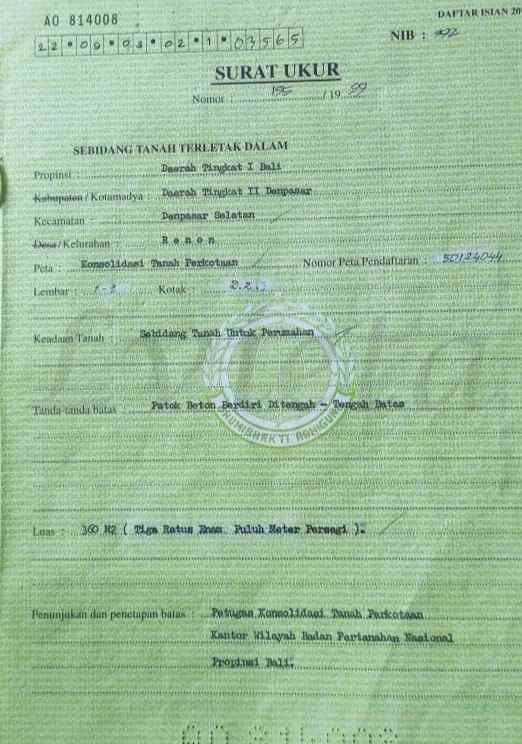 AO 814008
DAFTAR ISIAN 20
22.09.03.02.1.03565
NIB :
SURAT UKUR
Nomor : 155 / 19 99
SEBIDANG TANAH TERLETAK DALAM
Propinsi : Daerah Tingkat I Bali
Kabupaten / Kotamadya : Daerah Tingkat II Denpasar
Kecamatan : Denpasar Selatan
Desa / Kelurahan : R e n o n
Peta : Konsolidasi Tanah Perkotaan Nomor Peta Pendaftaran : 50124044
Lembar : Kotak :
Keadaan Tanah : Sebidang Tanah Untuk Perumahan
Tanda-tanda batas Patok Beton Berdiri Ditengah - Tengah Batas
BHUMIBHAKTI ADHIGUNA
Luas : 360 M2 ( Tiga Ratus Enam Puluh Meter Persegi ).
Penunjukan dan penetapan batas : Petugas Konsolidasi Tanah Perkotaan
Kantor Wilayah Badan Pertanahan Nasional
Propinsi Bali.